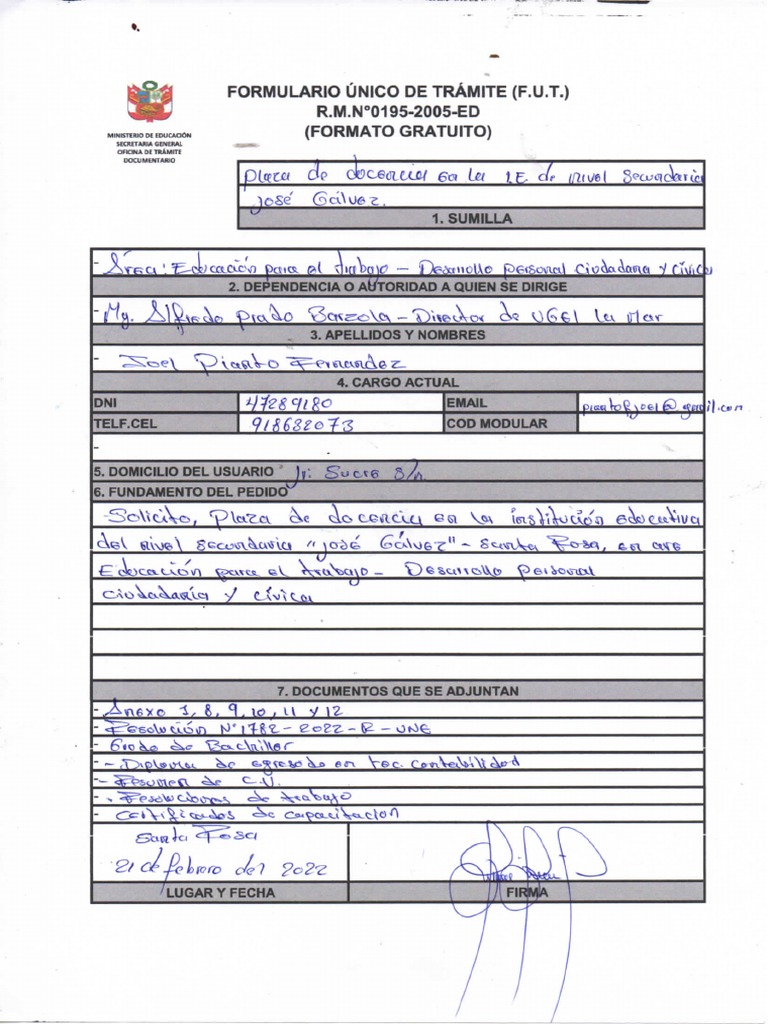 FORMULARIO ÚNICO DE TRÁMITE (F.U.T.)
R.M.N°0195-2005-ED
(FORMATO GRATUITO)
MINISTERIO DE EDUCACIÓN
SECRETARIA GENERAL
OFICINA DE TRÁMITE
DOCUMENTARIO
Plaza de docencia en la I.E de nivel secundaria
José Gálvez.
1. SUMILLA
- Área: Educación para el trabajo – Desarrollo personal ciudadana y cívica
2. DEPENDENCIA O AUTORIDAD A QUIEN SE DIRIGE
- Mg. Alfredo Prado Barzola – Director de UGEL La Mar
3. APELLIDOS Y NOMBRES
- Joel Pianto Fernandez
4. CARGO ACTUAL
DNI 47289180 EMAIL @gmail.com
TELF.CEL 918682073 COD MODULAR
-
5. DOMICILIO DEL USUARIO Jr. Sucre S/n.
6. FUNDAMENTO DEL PEDIDO
Solicito, Plaza de docencia en la institución educativa
del nivel secundaria "José Gálvez" – Santa Rosa, en are
Educación para el trabajo – Desarrollo personal
ciudadanía y cívica
7. DOCUMENTOS QUE SE ADJUNTAN
- Anexo 1, 8, 9, 10, 11 y 12
- Resolución N° 1782 - 2022 - R - UNE
- Grado de Bachiller
- – Diploma de egresado en tec. contabilidad
- Resumen de C.V.
- Resoluciones de trabajo
- Certificados de capacitacion
Santa Rosa
21 de febrero del 2022
LUGAR Y FECHA FIRMA